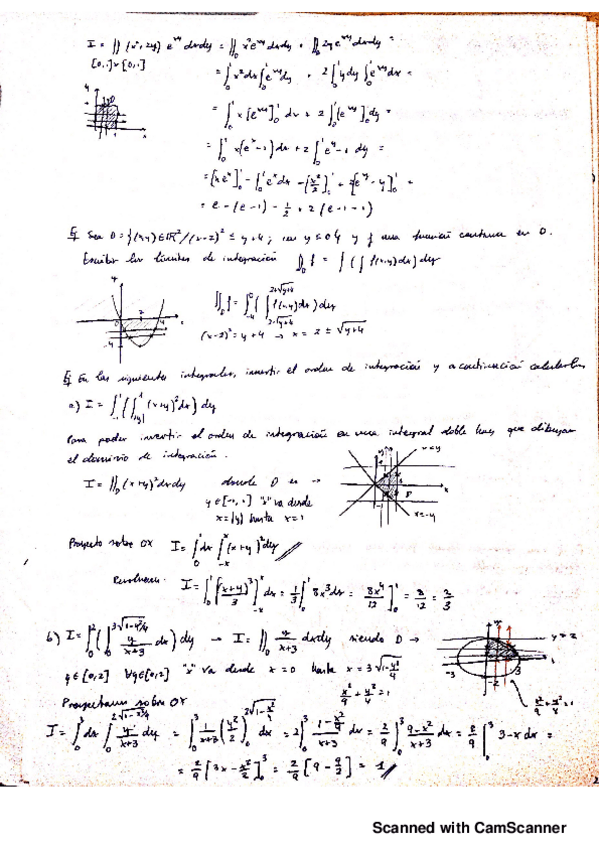 I = ∬ (x², 2y) e^{xy} dxdy = ∬_D x² e^{xy} dxdy + ∬_D 2y e^{xy} dxdy =
[0,1]×[0,1]
= ∫_0^1 x² dx ∫_0^1 e^{xy} dy + 2 ∫_0^1 y dy ∫_0^1 e^{xy} dx =
= ∫_0^1 x [e^{xy}]_0^1 dx + 2 ∫_0^1 [e^{xy}]_0^1 dy =
= ∫_0^1 x(e^x - 1) dx + 2 ∫_0^1 e^y - 1 dy =
= [x e^x]_0^1 - ∫_0^1 e^x dx - [x²/2]_0^1 + 2[e^y - y]_0^1 =
= e - (e - 1) - 1/2 + 2 (e - 1 - 1)
Ej Sea D = {(x,y) ∈ ℝ² / (x-2)² ≤ y+4; con y ≤ 0} y f una función continua en D.
Escribir los límites de integración ∬_D f = ∫ ( ∫ f(x,y) dx ) dy
∬_D f = ∫_{-4}^0 ( ∫_{2-√(y+4)}^{2+√(y+4)} f(x,y) dx ) dy
(x-2)² = y+4 → x = 2 ± √(y+4)
Ej En las siguientes integrales, invertir el orden de integración y a continuación calcularlas
a) I = ∫_{-1}^1 ( ∫_{|y|}^1 (x+y)² dx ) dy
Para poder invertir el orden de integración en una integral doble hay que dibujar
el dominio de integración.
I = ∬_D (x+y)² dxdy donde D es →
y ∈ [-1,1] "x" va desde
x = |y| hasta x = 1
x=y
x=-y
Proyecto sobre OX I = ∫_0^1 dx ∫_{-x}^x (x+y)² dy
Resolvemos: I = ∫_0^1 [(x+y)³/3]_{-x}^x dx = 1/3 ∫_0^1 8x³ dx = 8x⁴/12 ]_0^1 = 8/12 = 2/3
b) I = ∫_0^2 ( ∫_0^{3√(1-y²/4)} y/(x+3) dx ) dy → I = ∬_D y/(x+3) dxdy siendo D →
y=2
y ∈ [0,2] ∀y∈[0,2] "x" va desde x = 0 hasta x = 3√(1-y²/4)
x²/9 + y²/4 = 1
-3 -2 3
x²/9 + y²/4 = 1
Proyectamos sobre OX
I = ∫_0^3 dx ∫_0^{2√(1-x²/9)} y/(x+3) dy = ∫_0^3 1/(x+3) (y²/2)_0^{2√(1-x²/9)} dx = 2∫_0^3 (1-x²/9)/(x+3) dx = 2/9 ∫_0^3 (9-x²)/(x+3) dx = 2/9 ∫_0^3 3-x dx =
= 2/9 [3x - x²/2]_0^3 = 2/9 [9 - 9/2] = 1
Scanned with CamScanner